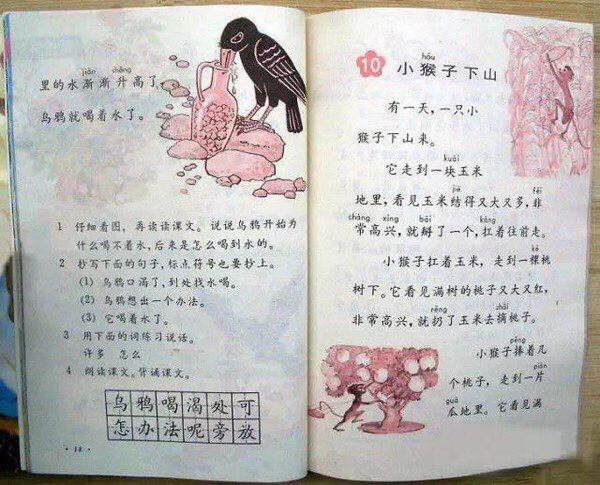 jiàn shēng
里的水渐渐升高了,
乌鸦就喝着水了。
1 仔细看图,再读读课文。说说乌鸦开始为
什么喝不着水,后来是怎么喝到水的。
2 抄写下面的句子,标点符号也要抄上。
(1) 乌鸦口渴了,到处找水喝。
(2) 乌鸦想出一个办法。
(3) 它喝着水了。
3 用下面的词练习说话。
许多 怎么
4 朗读课文。背诵课文。
乌鸦喝渴处可
怎办法呢旁放
· 18 ·
hóu
10 小猴子下山
有一天,一只小
猴子下山来。
kuài
它走到一块玉米
jiē fēi
地里,看见玉米结得又大又多,非
cháng xìng bāi káng
常高兴,就掰了一个,扛着往前走。
kē
小猴子扛着玉米,走到一棵桃
树下。它看见满树的桃子又大又红,
rēng zhāi
非常高兴,就扔了玉米去摘桃子。
pěng
小猴子捧着几
piàn
个桃子,走到一片
guā
瓜地里。它看见满